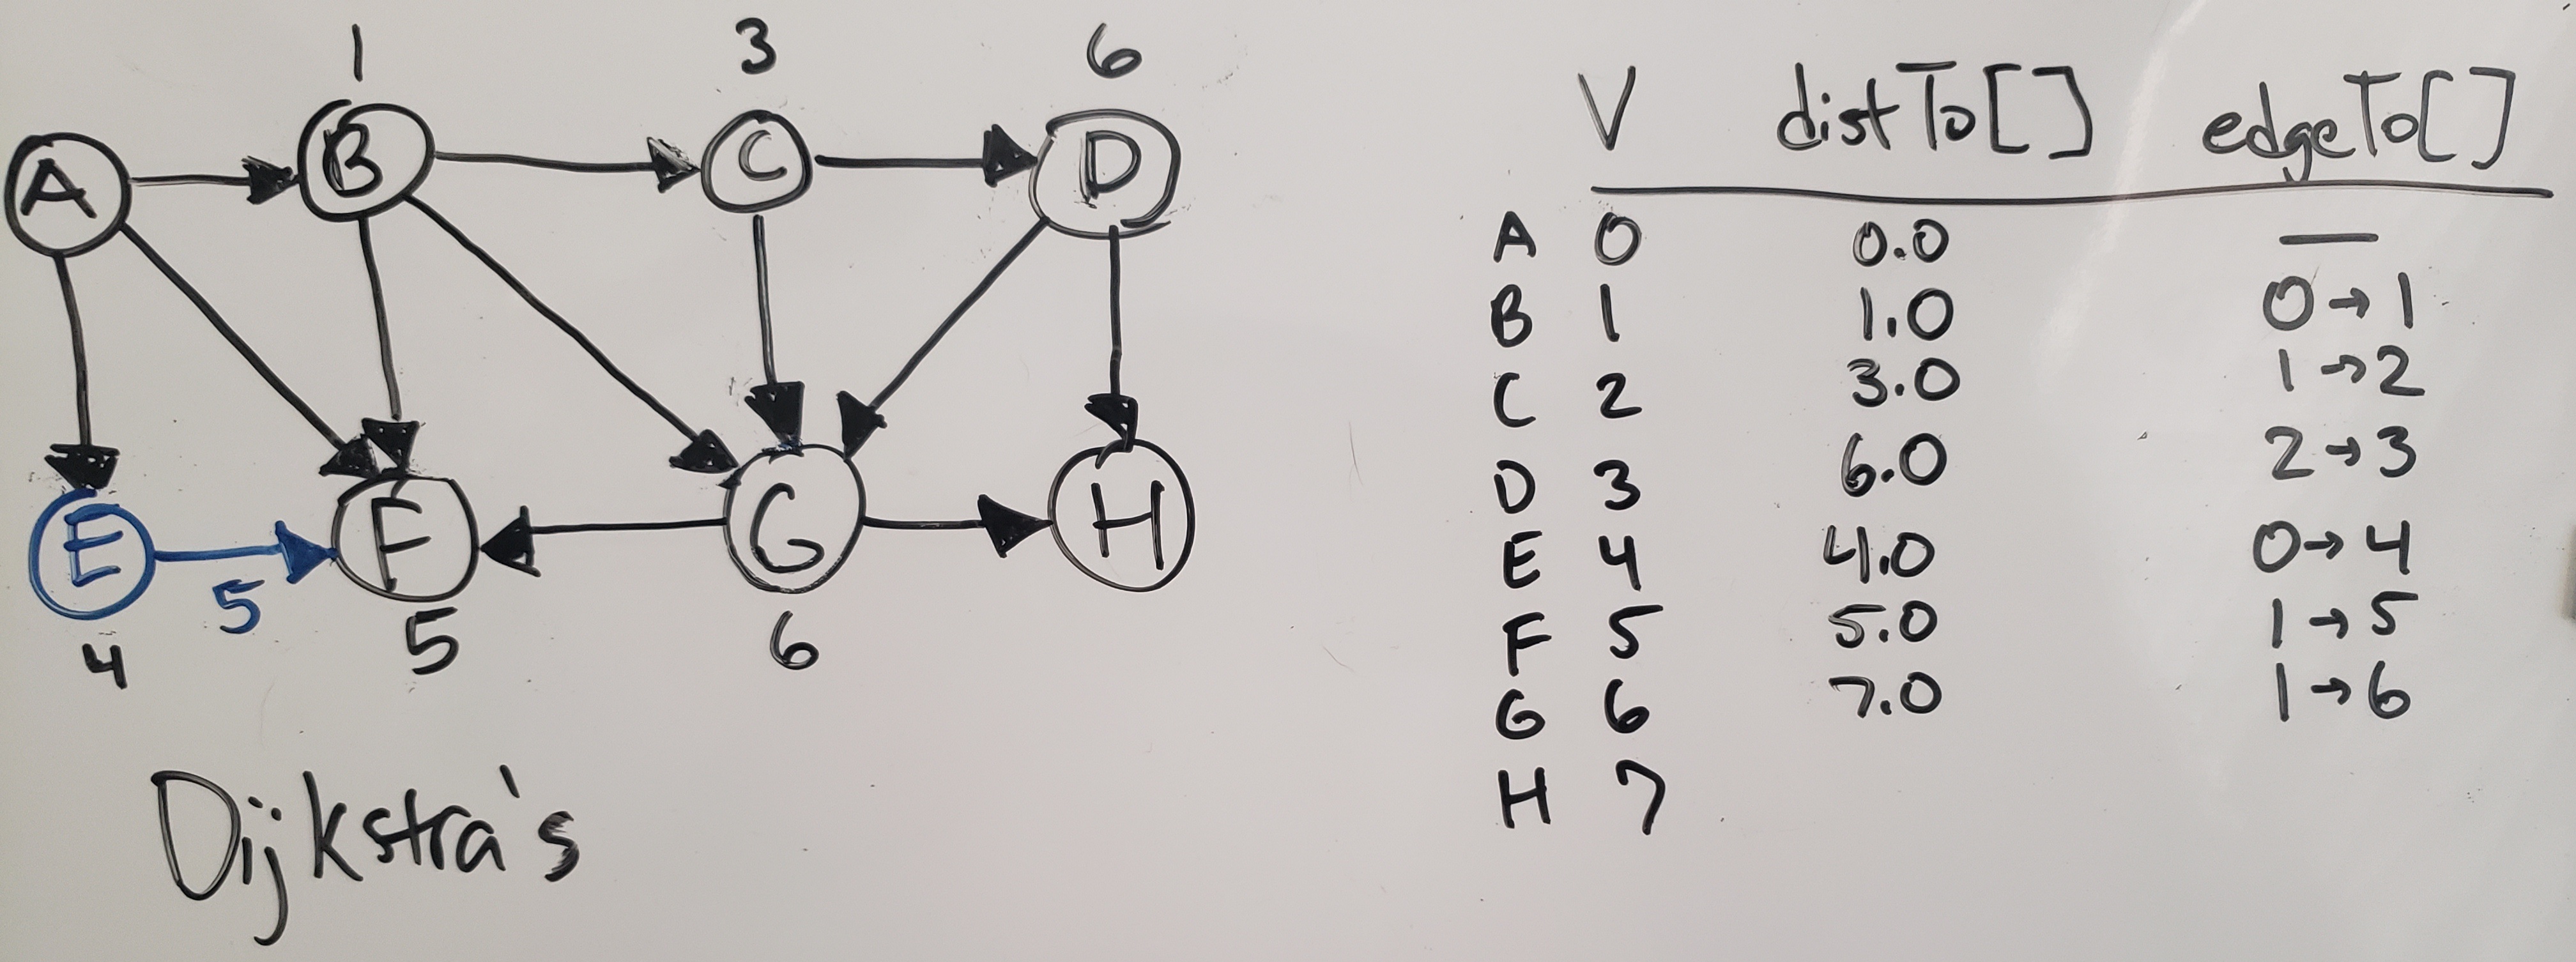 1 3 6
A B C D
E 5 F G H
4 5 6
Dijkstra's
V distTo[] edgeTo[]
A 0 0.0 —
B 1 1.0 0→1
C 2 3.0 1→2
D 3 6.0 2→3
E 4 4.0 0→4
F 5 5.0 1→5
G 6 7.0 1→6
H 7